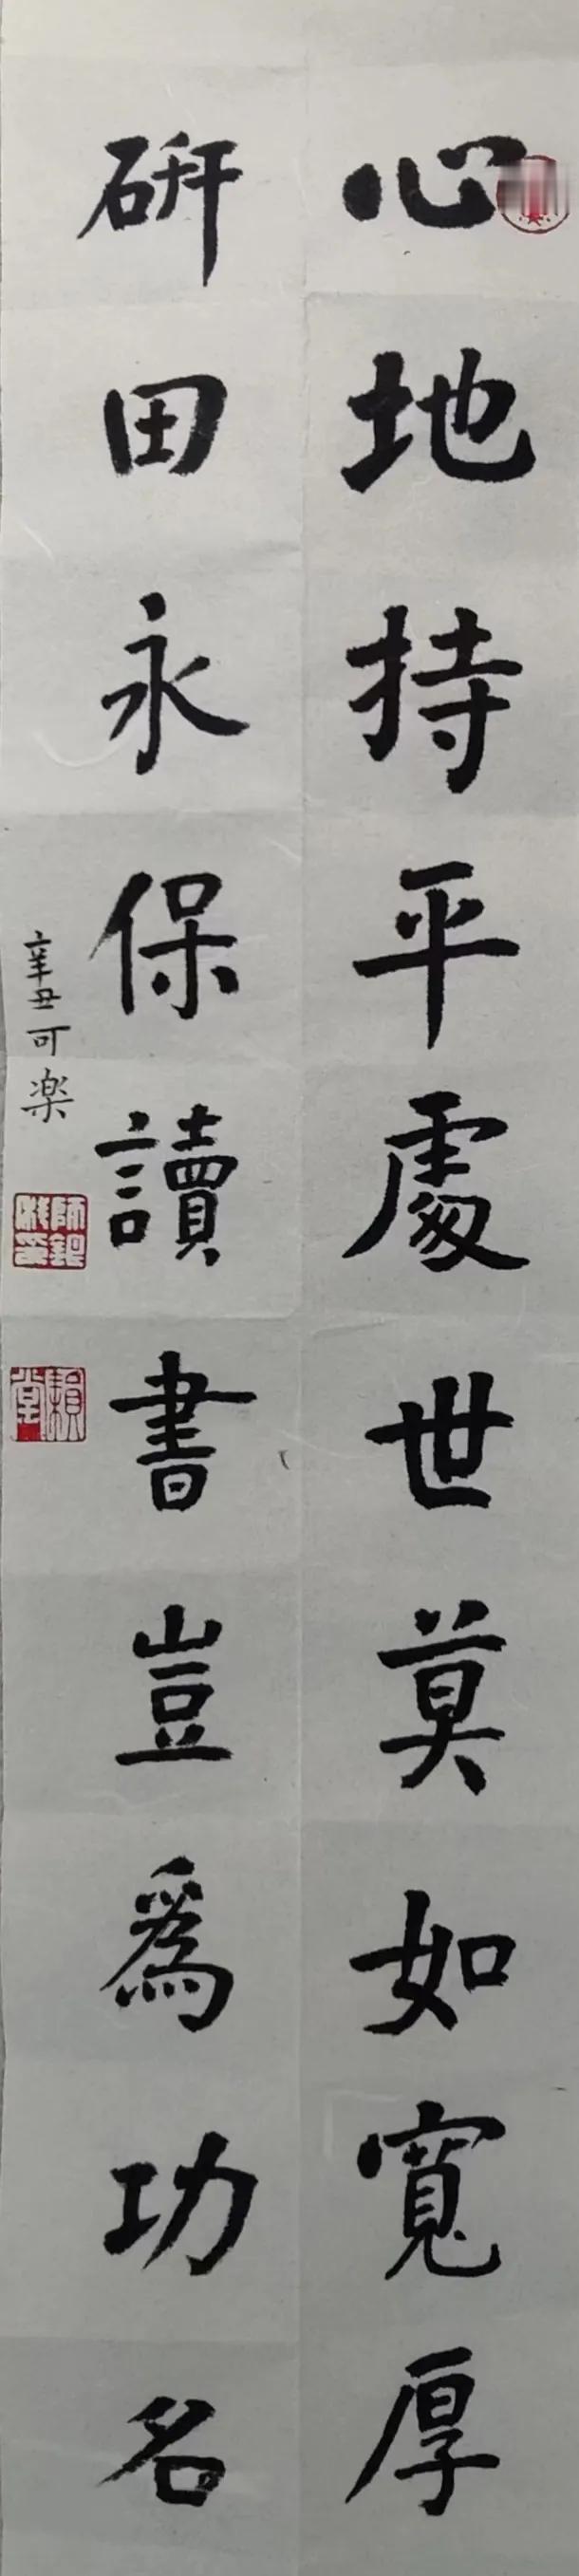 心地持平處世莫如寬厚
硏田永保讀書豈爲功名
辛丑可楽